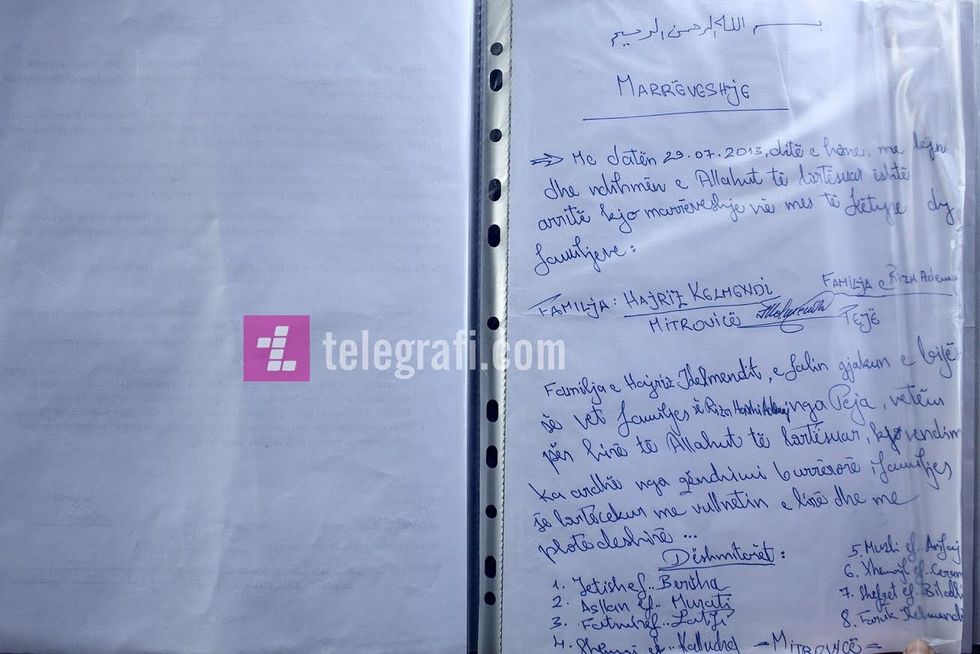 بسم الله الرحمن الرحيم
MARRËVESHJE
=> Me datën 29.07.2013, ditë e hëne, me lejen
dhe ndihmën e Allahut të lartësuar është
arritë kjo marrëveshje në mes të këtyre dy
familjeve:
FAMILJA: HAJRIZ KELMENDI FAMILJA e Riza Adema
MITROVICË PEJË
telegrafi.com
Familja e Hajriz Kelmendit, e falin gjakun e bijë
së vet familjes së Riza nga Peja, vetëm
për hirë të Allahut të lartësuar, kjo vendim
ka ardhë nga qëndrimi burrërorë i familjes
së lartëcekur me vullnetin e lirë dhe me
plotë deshirë ...
Dëshmitarët:
1. Jetish ef. Berisha
2. Asllan ef. Murati
3. Fatmir ef. Latifi
4. ef.
5. Mushi ef.
6. ef.
7. Shefqet ef.
8. Faruk Kelmendi
- MITROVICË -